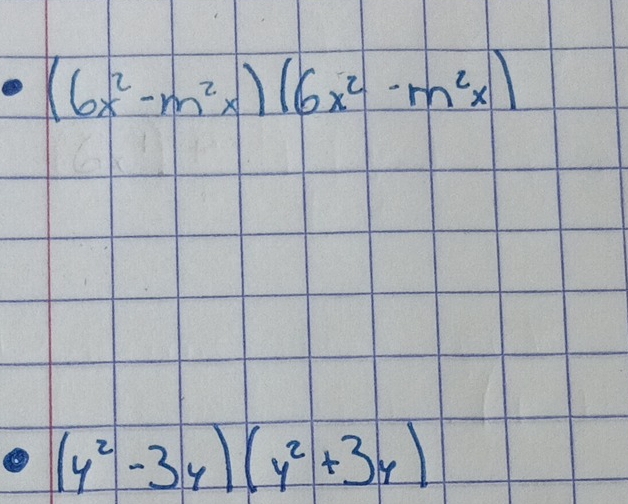 • (6x² - m²x)(6x² - m²x)
• (y² - 3y)(y² + 3y)